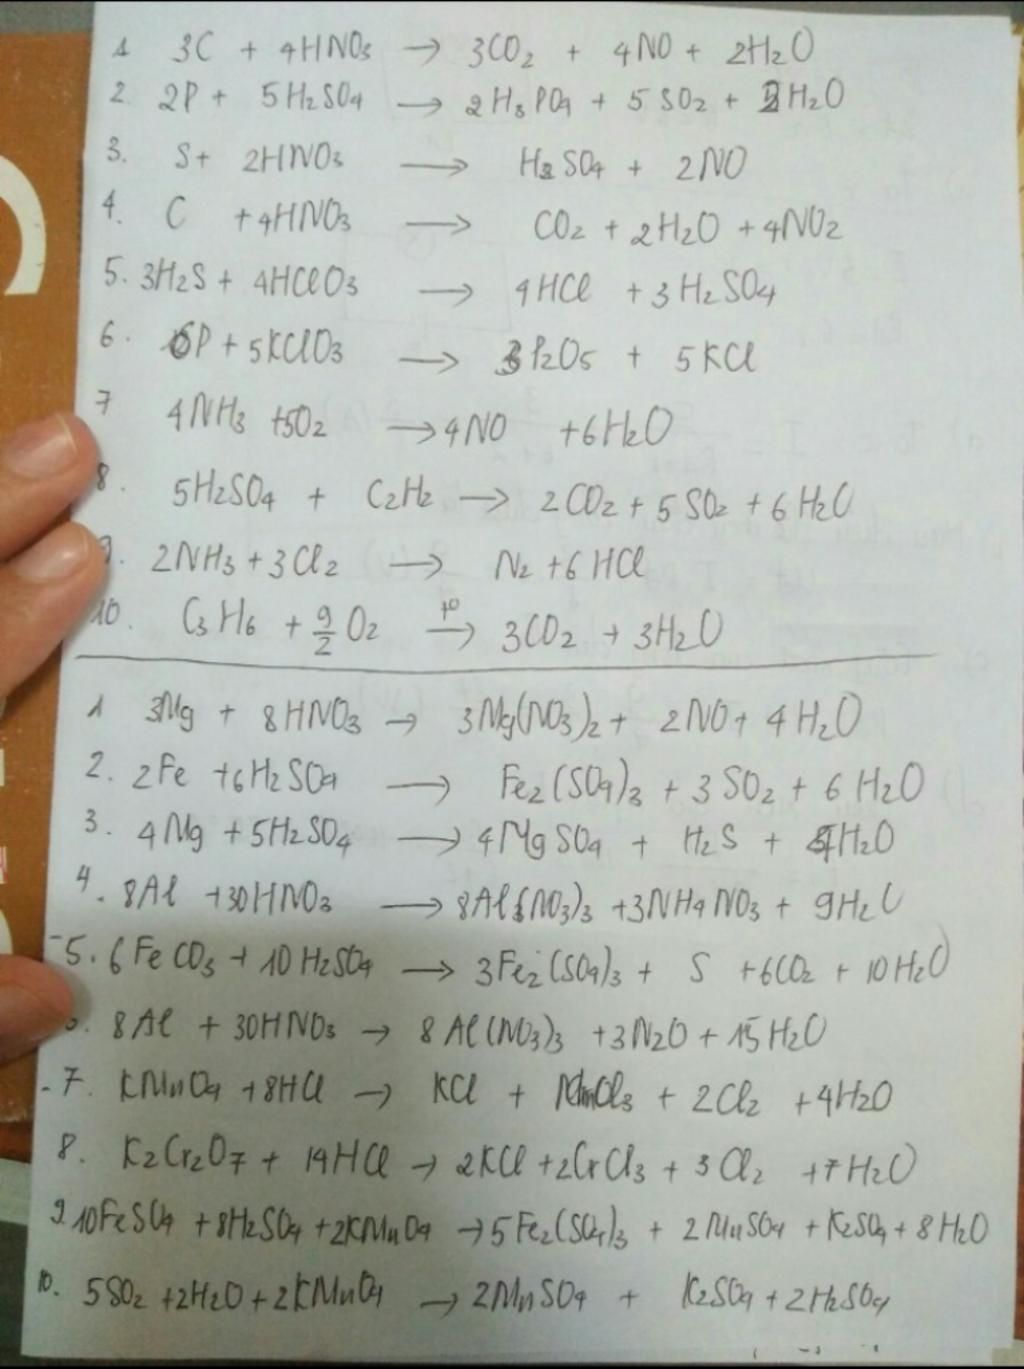 1 3C + 4HNO3 → 3CO2 + 4NO + 2H2O
2. 2P + 5H2SO4 → 2H3PO4 + 5SO2 + 2H2O
3. S + 2HNO3 → H2SO4 + 2NO
4. C + 4HNO3 → CO2 + 2H2O + 4NO2
5. 3H2S + 4HClO3 → 4HCl + 3H2SO4
6. 6P + 5KClO3 → 3P2O5 + 5KCl
7 4NH3 + 5O2 → 4NO + 6H2O
8. 5H2SO4 + C2H2 → 2CO2 + 5SO2 + 6H2O
9. 2NH3 + 3Cl2 → N2 + 6HCl
10. C3H6 + 9/2 O2 →(t°) 3CO2 + 3H2O
1 3Mg + 8HNO3 → 3Mg(NO3)2 + 2NO + 4H2O
2. 2Fe + 6H2SO4 → Fe2(SO4)3 + 3SO2 + 6H2O
3. 4Mg + 5H2SO4 → 4MgSO4 + H2S + 4H2O
4. 8Al + 30HNO3 → 8Al(NO3)3 + 3NH4NO3 + 9H2O
-5. 6FeCO3 + 10H2SO4 → 3Fe2(SO4)3 + S + 6CO2 + 10H2O
6. 8Al + 30HNO3 → 8Al(NO3)3 + 3N2O + 15H2O
-7. KMnO4 + 8HCl → KCl + MnCl3 + 2Cl2 + 4H2O
8. K2Cr2O7 + 14HCl → 2KCl + 2CrCl3 + 3Cl2 + 7H2O
9 10FeSO4 + 8H2SO4 + 2KMnO4 → 5Fe2(SO4)3 + 2MnSO4 + K2SO4 + 8H2O
10. 5SO2 + 2H2O + 2KMnO4 → 2MnSO4 + K2SO4 + 2H2SO4